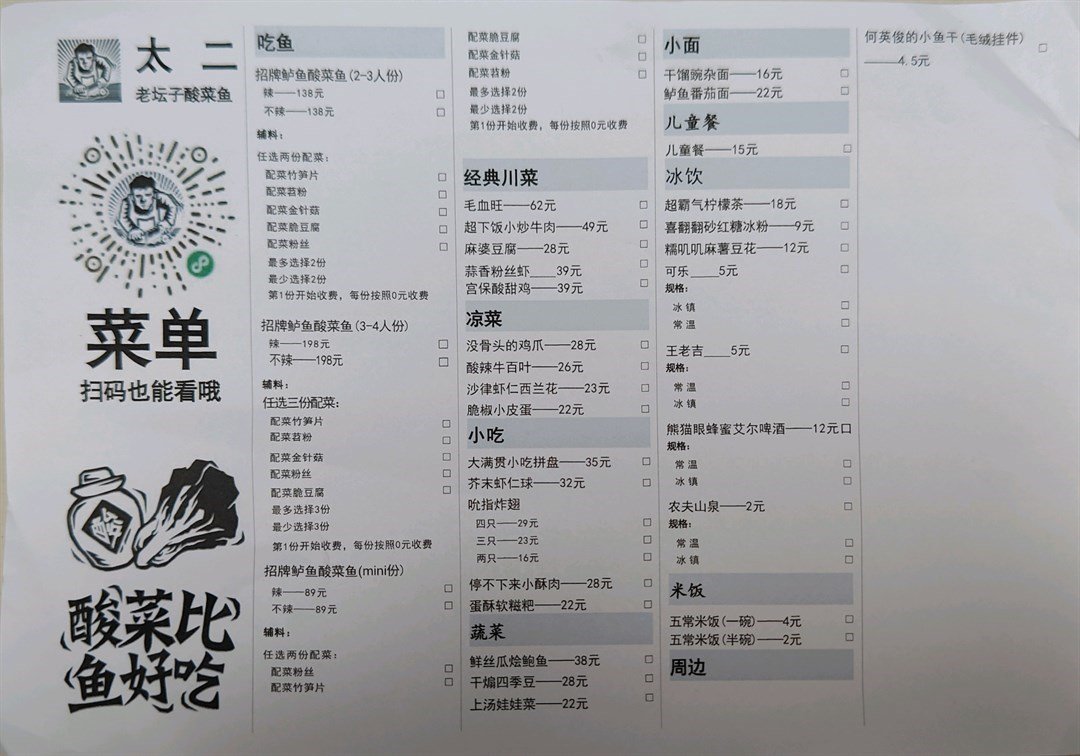 太 二
老坛子酸菜鱼
菜单
扫码也能看哦
酸
酸菜比
鱼好吃
吃鱼
招牌鲈鱼酸菜鱼(2-3人份)
辣——138元
不辣——138元
辅料：
任选两份配菜：
配菜竹笋片
配菜苕粉
配菜金针菇
配菜脆豆腐
配菜粉丝
最多选择2份
最少选择2份
第1份开始收费，每份按照0元收费
招牌鲈鱼酸菜鱼(3-4人份)
辣——198元
不辣——198元
辅料：
任选三份配菜：
配菜竹笋片
配菜苕粉
配菜金针菇
配菜粉丝
配菜脆豆腐
最多选择3份
最少选择3份
第1份开始收费，每份按照0元收费
招牌鲈鱼酸菜鱼(mini份)
辣——89元
不辣——89元
辅料：
任选两份配菜：
配菜粉丝
配菜竹笋片
配菜脆豆腐
配菜金针菇
配菜苕粉
最多选择2份
最少选择2份
第1份开始收费，每份按照0元收费
经典川菜
毛血旺——62元
超下饭小炒牛肉——49元
麻婆豆腐——28元
蒜香粉丝虾____39元
宫保酸甜鸡——39元
凉菜
没骨头的鸡爪——28元
酸辣牛百叶——26元
沙律虾仁西兰花——23元
脆椒小皮蛋——22元
小吃
大满贯小吃拼盘——35元
芥末虾仁球——32元
吮指炸翅
四只——29元
三只——23元
两只——16元
停不下来小酥肉——28元
蛋酥软糍粑——22元
蔬菜
鲜丝瓜烩鲍鱼——38元
干煸四季豆——28元
上汤娃娃菜——22元
小面
干馏豌杂面——16元
鲈鱼番茄面——22元
儿童餐
儿童餐——15元
冰饮
超霸气柠檬茶——18元
喜翻翻砂红糖冰粉——9元
糯叽叽麻薯豆花——12元
可乐____5元
规格：
冰镇
常温
王老吉____5元
规格：
常温
冰镇
熊猫眼蜂蜜艾尔啤酒——12元
规格：
常温
冰镇
农夫山泉——2元
规格：
常温
冰镇
米饭
五常米饭(一碗)——4元
五常米饭(半碗)——2元
周边
何英俊的小鱼干(毛绒挂件)
——4.5元